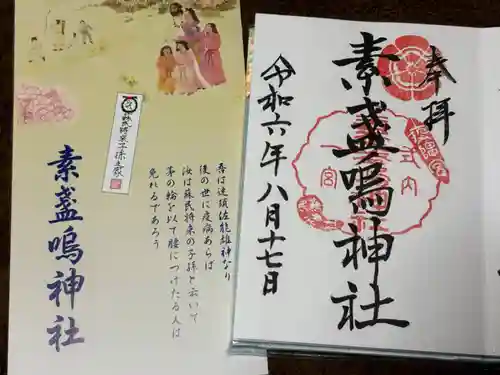 奉拝
素盞嗚神社
令和六年八月十七日
式内
一宮
疫隅宮
吾は速須佐能雄神なり
後の世に疫病あらば
汝は蘇民将来の子孫と云いて
茅の輪を以て腰につけたる人は
免れるであろう
蘇民将来子孫之
素盞嗚神社